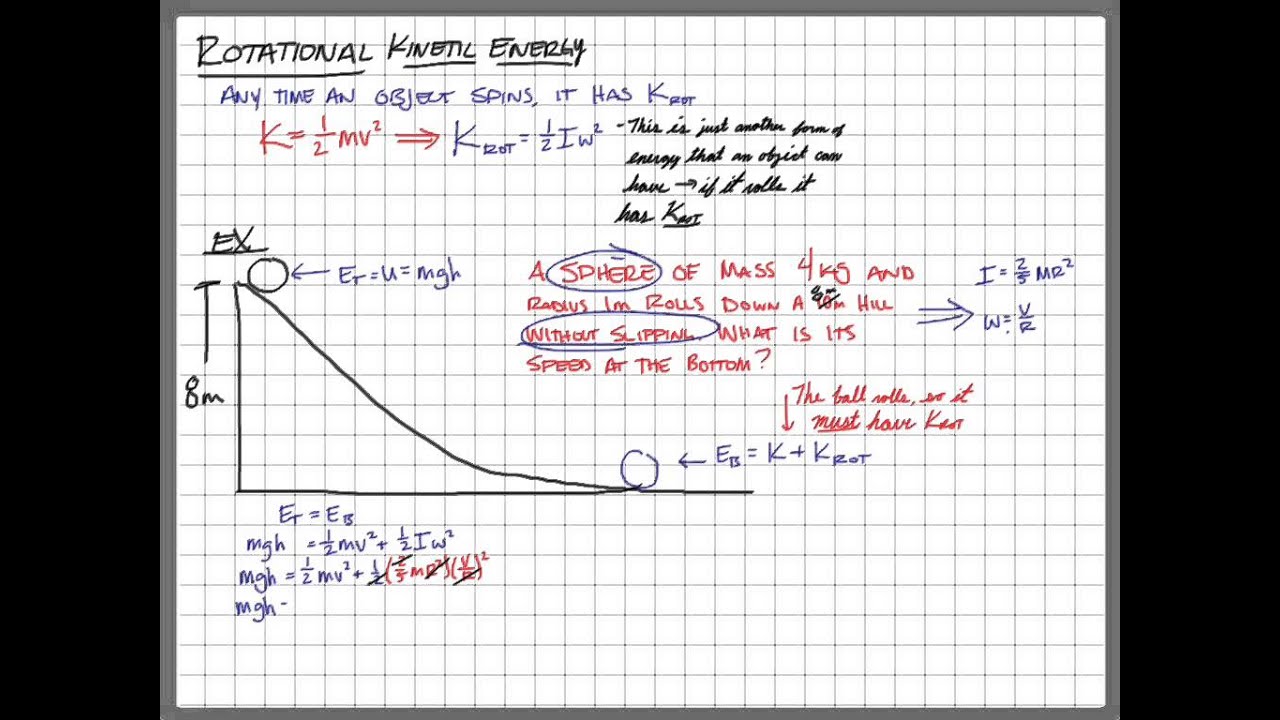 ROTATIONAL KINETIC ENERGY
ANY TIME AN OBJECT SPINS, IT HAS K_ROT
K = 1/2 mv² ⟹ K_ROT = 1/2 Iw²
- This is just another form of
energy that an object can
have → if it rolls it
has K_ROT
EX
← E_T = U = mgh
8m
A SPHERE OF MASS 4kg AND
RADIUS 1m ROLLS DOWN A 8m HILL
WITHOUT SLIPPING. WHAT IS ITS
SPEED AT THE BOTTOM?
⟹
I = 2/5 MR²
W = V/R
↓ The ball rolls, so it
must have K_ROT
← E_B = K + K_ROT
E_T = E_B
mgh = 1/2 mv² + 1/2 Iw²
mgh = 1/2 mv² + 1/2 (2/5 mR²)(V/R)²
mgh -